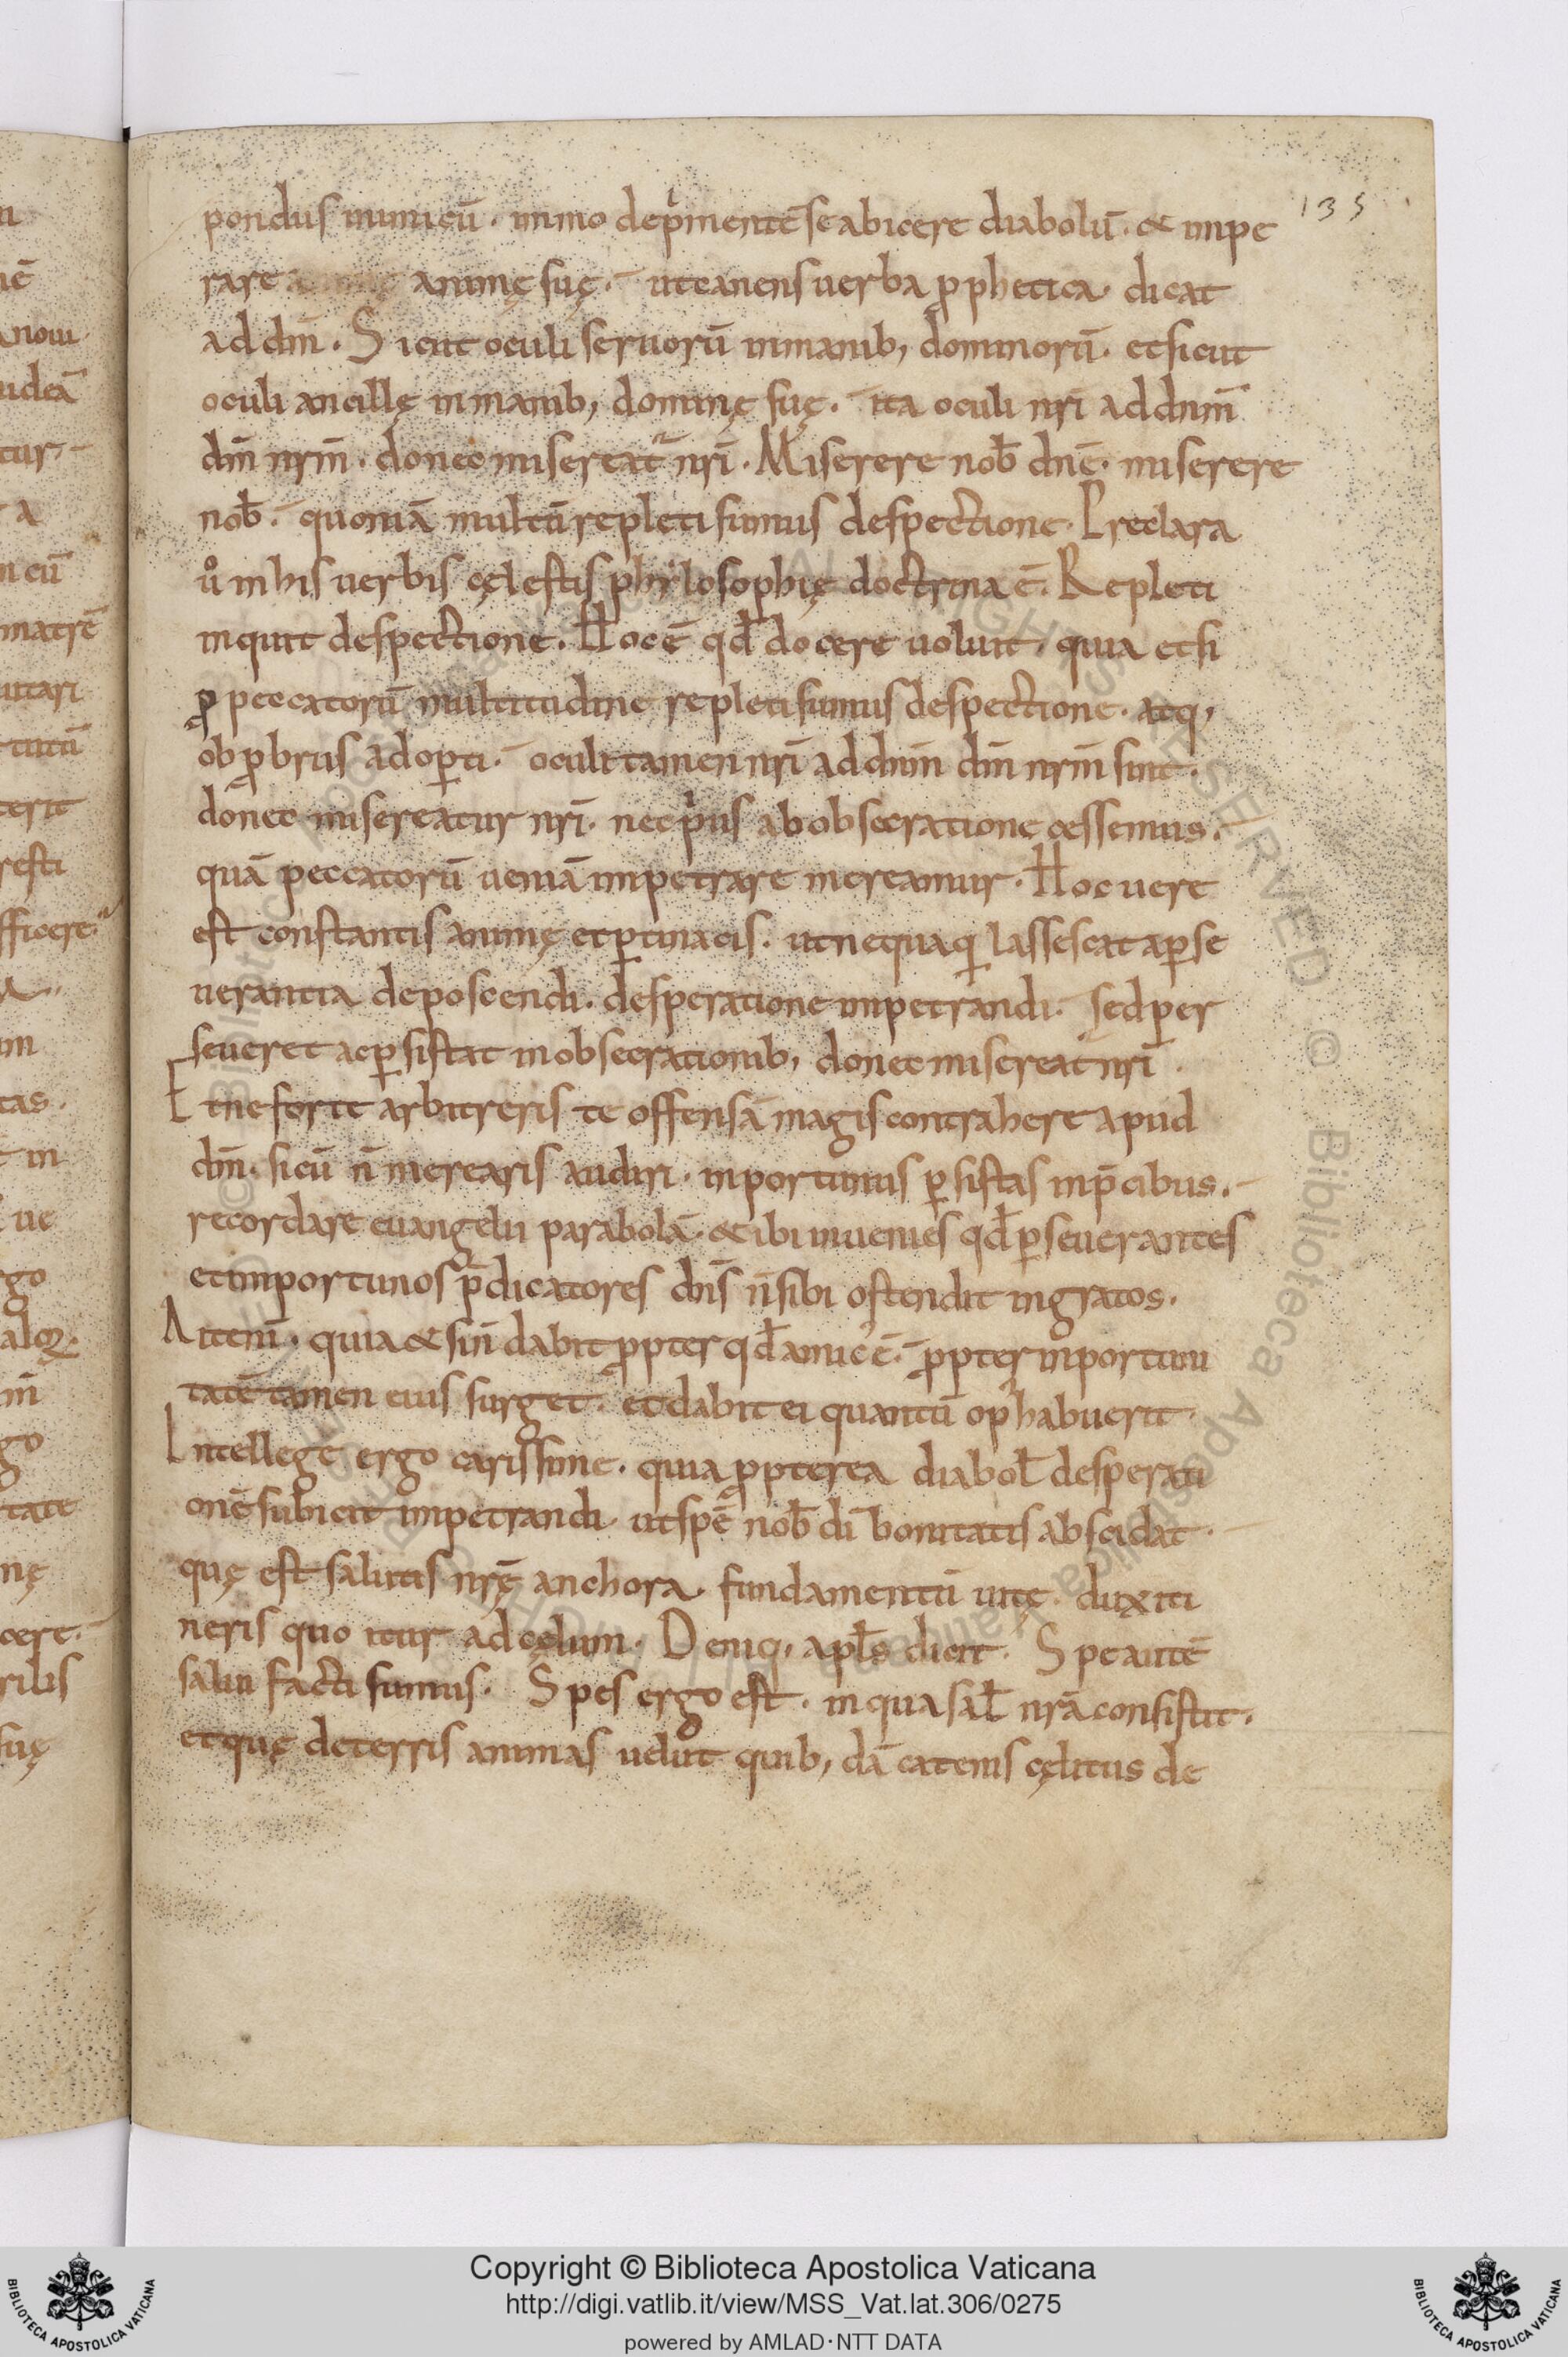 135
pondus inimicū. immo dep̍mentē se abicere diabolū. & impe
rare animę suę. ut canens uerba ꝓphetica. dicat
ad dm̄. Sicut oculi seruorū in manib; dominorū. et sicut
oculi ancillę in manib; dominę suę. ita oculi nr̄i ad dnm̄
dm̄ nr̄m. donec misereat᷑ nr̄i. Miserere nob̄ dnē. miserere
nob̄. quoniā multū repleti sumus despectione. Preclara
uͦ in his uerbis cęlestis philosophię doctrina ē. Repleti
inquit despectione. Hoc ē qd̄ docere uoluit. quia etsi
ꝓ peccatorū multitudine repleti sumus despectione. atq;
obꝓbriis adoꝑti. oculi tamen nr̄i ad dnm̄ dm̄ nr̄m sint.
donec misereatur nr̄i. nec p̍us ab obsecratione cessemus.
quā peccatorū ueniā impetrare mereamur. Hoc uere
est constantis animę et ꝑtinacis. ut nequaqͥ lassescat aꝑse
uerantia deposcendi. desperatione impetrandi. sed per
seueret ac ꝑsistat in obsecrationib; donec misereat nr̄i.
Et ne forte arbitreris te offensā magis contrahere apud
dm̄. si cū n̄ merearis audiri. inportunus ꝑsistas in p̄cibus.
recordare euangelii parabolā. & ibi inuenies qd̄ ꝑseuerantes
et importunos p̄dicatores dn̄s n̄ sibi ostendit ingratos.
Ait eni̅. quia & si n̄ dabit ꝓpter qd̄ amic᾽ ē. ꝓpter inportuni
tatē tamen eius surget. et dabit ei quantū op᾽ habuerit.
Intellege ergo carissime. quia ꝓpterea diabol̄ desperati
onē subicit impetrandi. ut spē nob̄ dī bonitatis abscidat.
quę est salutis nr̄ę anchora. fundamentū uitę. dux iti
neris quo itur ad cęlum. Deniq; apl̄s dicit. Spe autē
salui facti sumus. Spes ergo est. in qua sal̄ nr̄a consistit.
et quę de terris animas uelut quib;dā catenis cęlitus de
Copyright © Biblioteca Apostolica Vaticana
http://digi.vatlib.it/view/MSS_Vat.lat.306/0275
powered by AMLAD·NTT DATA